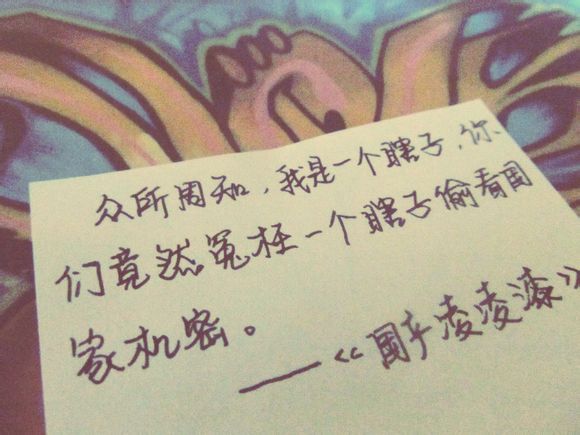 众所周知，我是一个瞎子，你
们竟然冤枉一个瞎子偷看国
家机密。
——《国产凌凌漆》